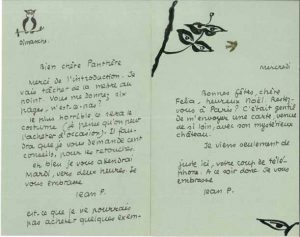 dimanche.
Bien chère Panthère
Merci de l'introduction. Je
vais tâcher de la mettre au
point. Vous me donnez dix
pages, n'est-ce pas?
le plus horrible ce sera le
costume (je pense qu'on peut
l'acheter d'occasion). Il fau-
dra que je vous demande cent
conseils, pour les retouches.
eh bien je vous attendrai
mardi, vers deux heures. Je
vous embrasse
Jean P.
est-ce que je ne pourrais
pas acheter quelques exem-
mercredi
Bonnes fêtes, chère
Felia, heureux Noël. Restez-
vous à Paris? C'était gentil
de m'envoyer une carte, venue
de si loin, avec son mystérieux
château.
Je viens seulement de
juste ici, votre coup de télé-
phone. A ce soir donc. Je vous
embrasse
Jean P.